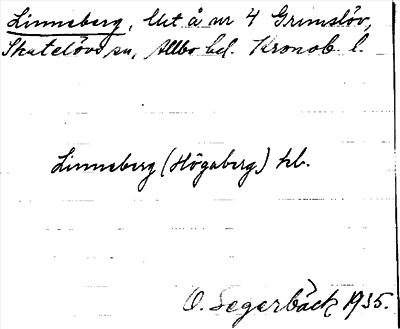 Linneberg, lht å nr 4 Grimslöv,
Skatelövs sn, Allbo hd. Kronob. l.
Linneberg (Högaberg) hl.
O. Segerbäck 1935.